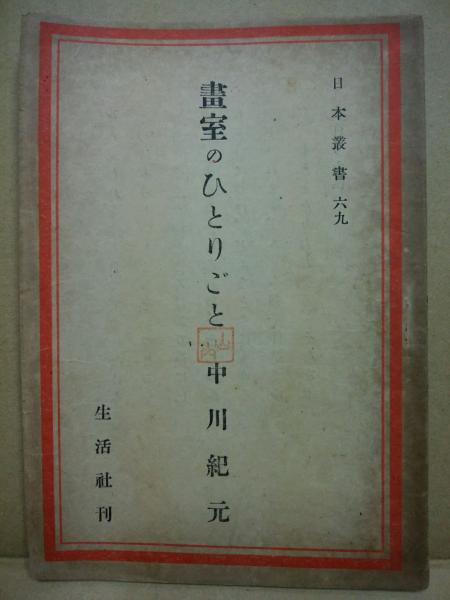 日本叢書 六九
畫室のひとりごと 中川紀元
生活社刊